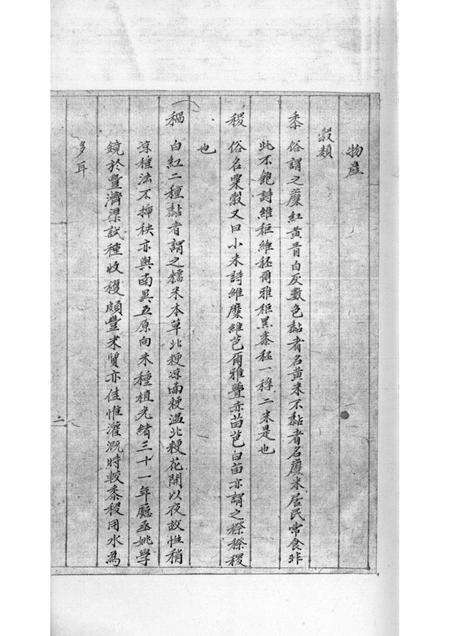 物產
穀類
黍 俗謂之糜紅黃青白灰數色黏者名黃米不黏者名糜米居民常食非
此不飽詩維秬維秠爾雅秬黑黍秠一稃二米是也
稷 俗名粟穀又曰小米詩維穈維芑爾雅虋赤苗芑白苗亦謂之穄穄稷
也
稻 白紅二種黏者謂之糯米本草北粳涼南粳溫北粳花開以夜故性稍
涼種法不揷秧亦與南異五原向未種植光緒三十一年廳丞姚學
鏡於豐濟渠試種收穫頗豐米質亦佳惟灌溉時較黍稷用水為
多耳
二